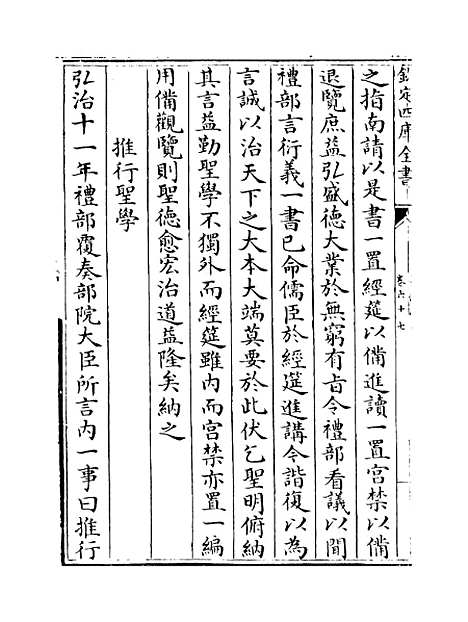 欽定四庫全書
卷六十七
之指南請以是書一置經筵以備進讀一置宮禁以備
退覽庶益弘盛德大業於無窮有旨令禮部看議以聞
禮部言衍義一書已命儒臣於經筵進講令諧復以為
言誠以治天下之大本大端莫要於此伏乞聖明俯納
其言益勤聖學不獨外而經筵雖內而宮禁亦置一編
用備觀覽則聖德愈宏治道益隆矣納之
推行聖學
弘治十一年禮部覆奏部院大臣所言內一事曰推行